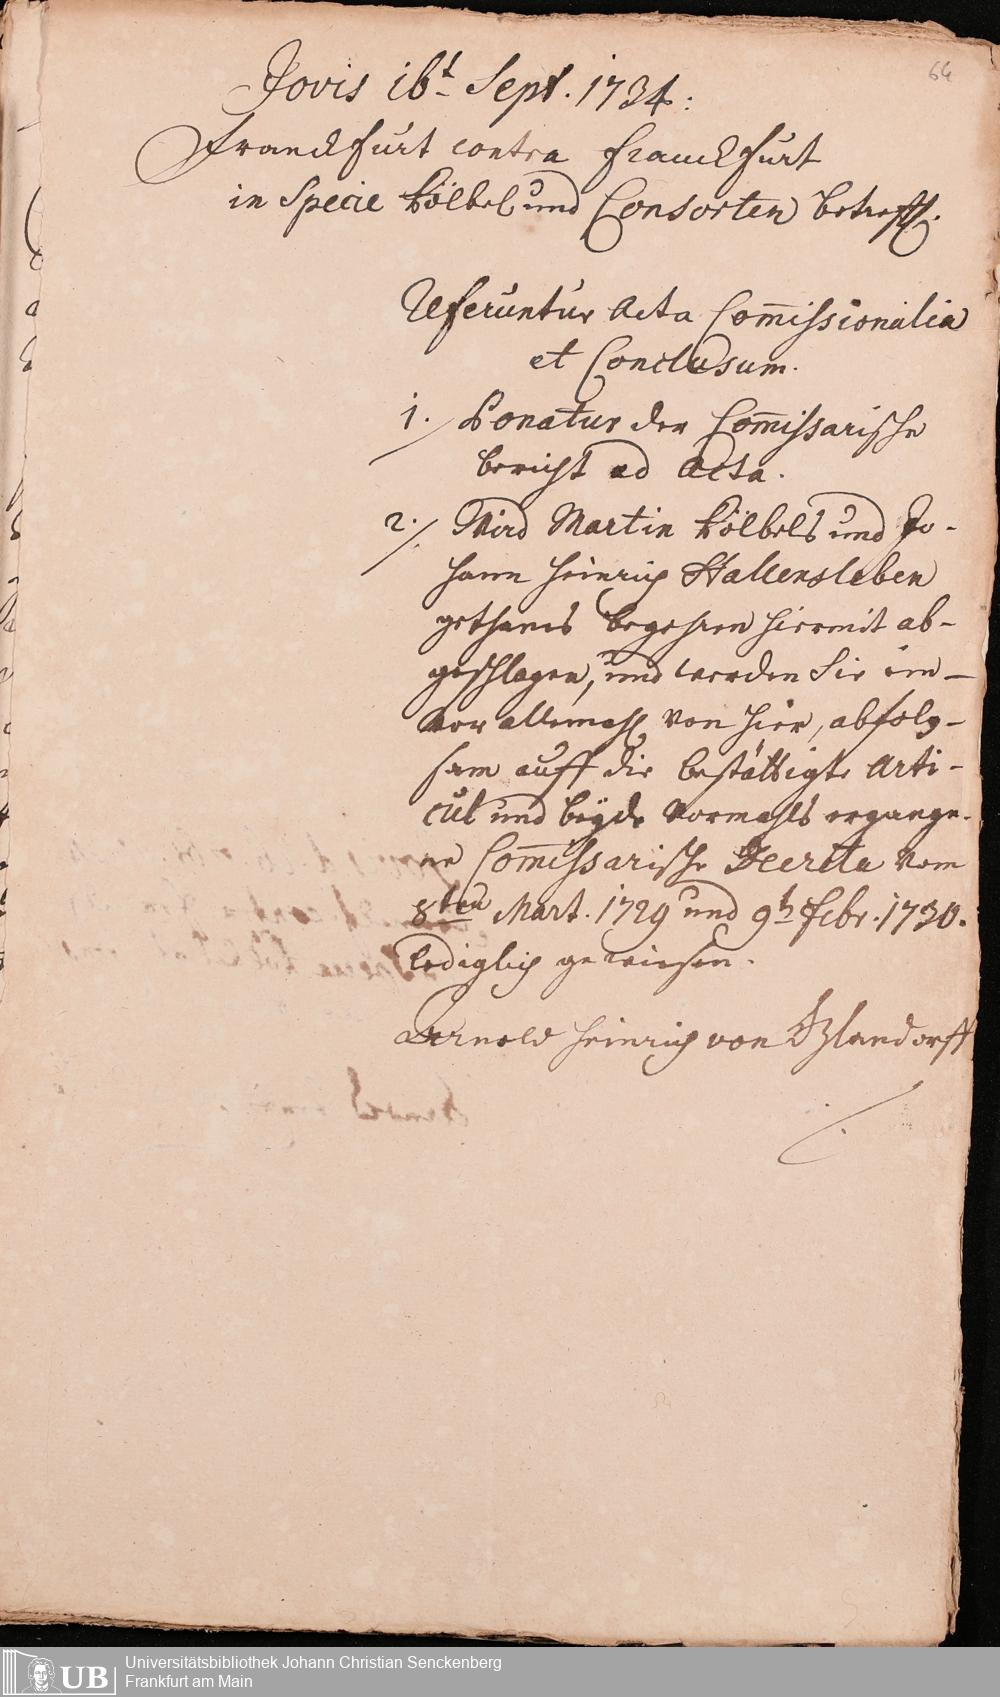 64
Jovis 16t Sept. 1734:
Franckfurt contra Franckfurt
in Specie Kölbel und Consorten betreff.
Referuntur Acta Com̅issionalia
et Conclusum.
1./ Ponatur der Com̅issarische
bericht ad Acta.
2./ Wird Martin Kölbels und Jo-
hann Heinrich Hallensleben
gethanes begehren hiermit ab-
geschlagen, und werden Sie ein-
vor allemahl von hier, abfolg-
sam auff die bestättigte Arti-
cul und beyde vormahls ergange-
ne Com̅issarische Decreta vom
8ten Mart. 1729 und 9t Febr. 1730.
lediglich gewiesen.
Arnold Heinrich von
UB
Universitätsbibliothek Johann Christian Senckenberg
Frankfurt am Main